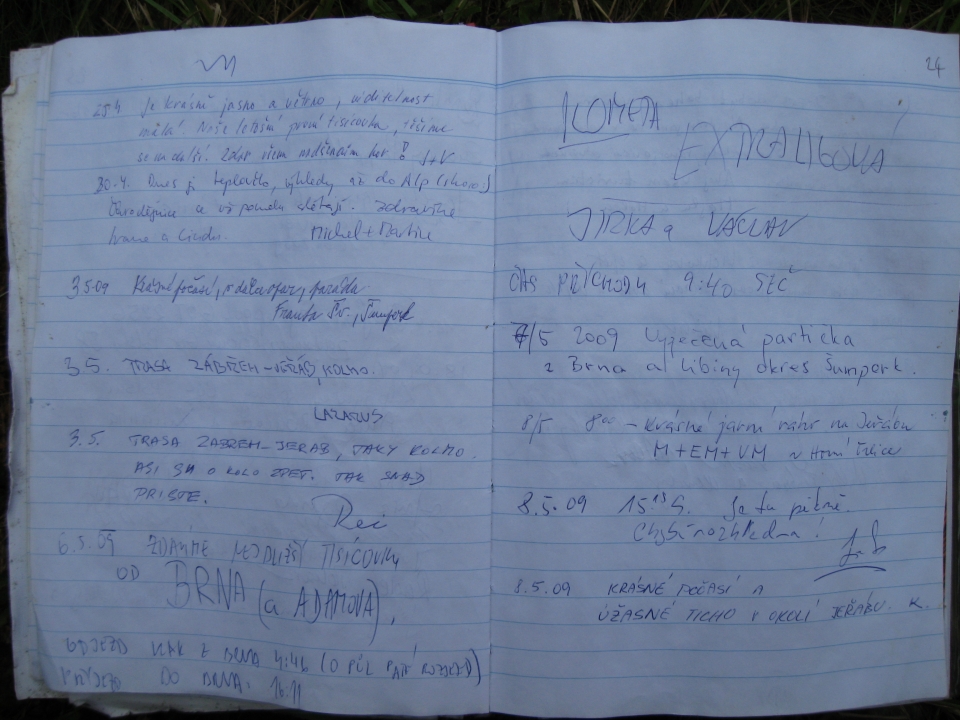 25.4 Je krásně jasno a větrno, viditelnost
malá. Naše letošní první tisícovka, těšíme
se na další. Zdar všem nadšencům hor! J+V
30.4. Dnes je teplo, výhledy až do Alp (skoro)
Čarodějnice a už pomalu slétají. Zdravíme
Ivana a Lindu. Michal + Martina
3.5.09 Krásné počasí, paráda
Franta Šv., Šumperk
3.5. TRASA ZÁBŘEH-JEŘÁB, KOLMO.
LAZARUS
3.5. TRASA ZABREH-JERAB, TAKY KOLMO.
ASI SM O KOLO ZPET. TAK SNAD
PRISTE.
6.5.09 ZDÁRMĚ TISÍCOVKU
OD BRNA (a ADAMOVA),
ODJEZD VLAK Z BRNA 4:46 (O PŮL PÁTÉ ROZJEZD)
PŘÍJEZD DO BRNA. 16.11
24
KOMETA
EXTRALIGOVÁ
JIRKA a VÁCLAV
ČAS PŘÍCHODU 9:40 SEČ
7/5 2009 Vypečená partička
z Brna a Libiny okres Šumperk.
8/5 8ºº - krásné jarní ráno na Jeřábu
M+EM+VM z Horní
8.5.09 15¹⁵ h. Je tu pěkně.
Chybí rozhledna!
8.5.09 KRÁSNÉ POČASÍ A
ÚŽASNÉ TICHO V OKOLÍ JEŘÁBU. K.